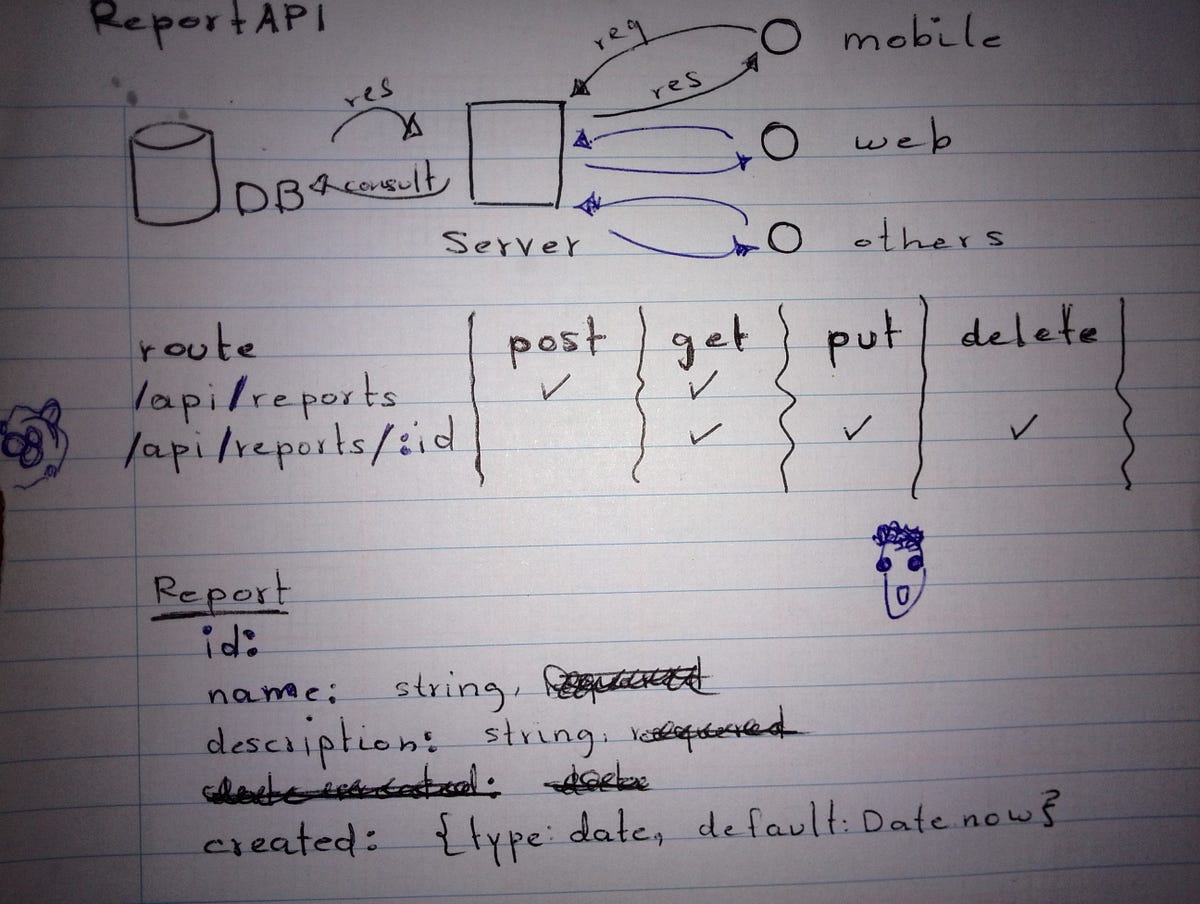 Report API
req
mobile
res
res
web
DB
consult
Server
others
route post get put delete
/api/reports ✓ ✓
/api/reports/:id ✓ ✓ ✓
Report
id:
name: string,
description: string, required
created: {type: date, default: Date.now}